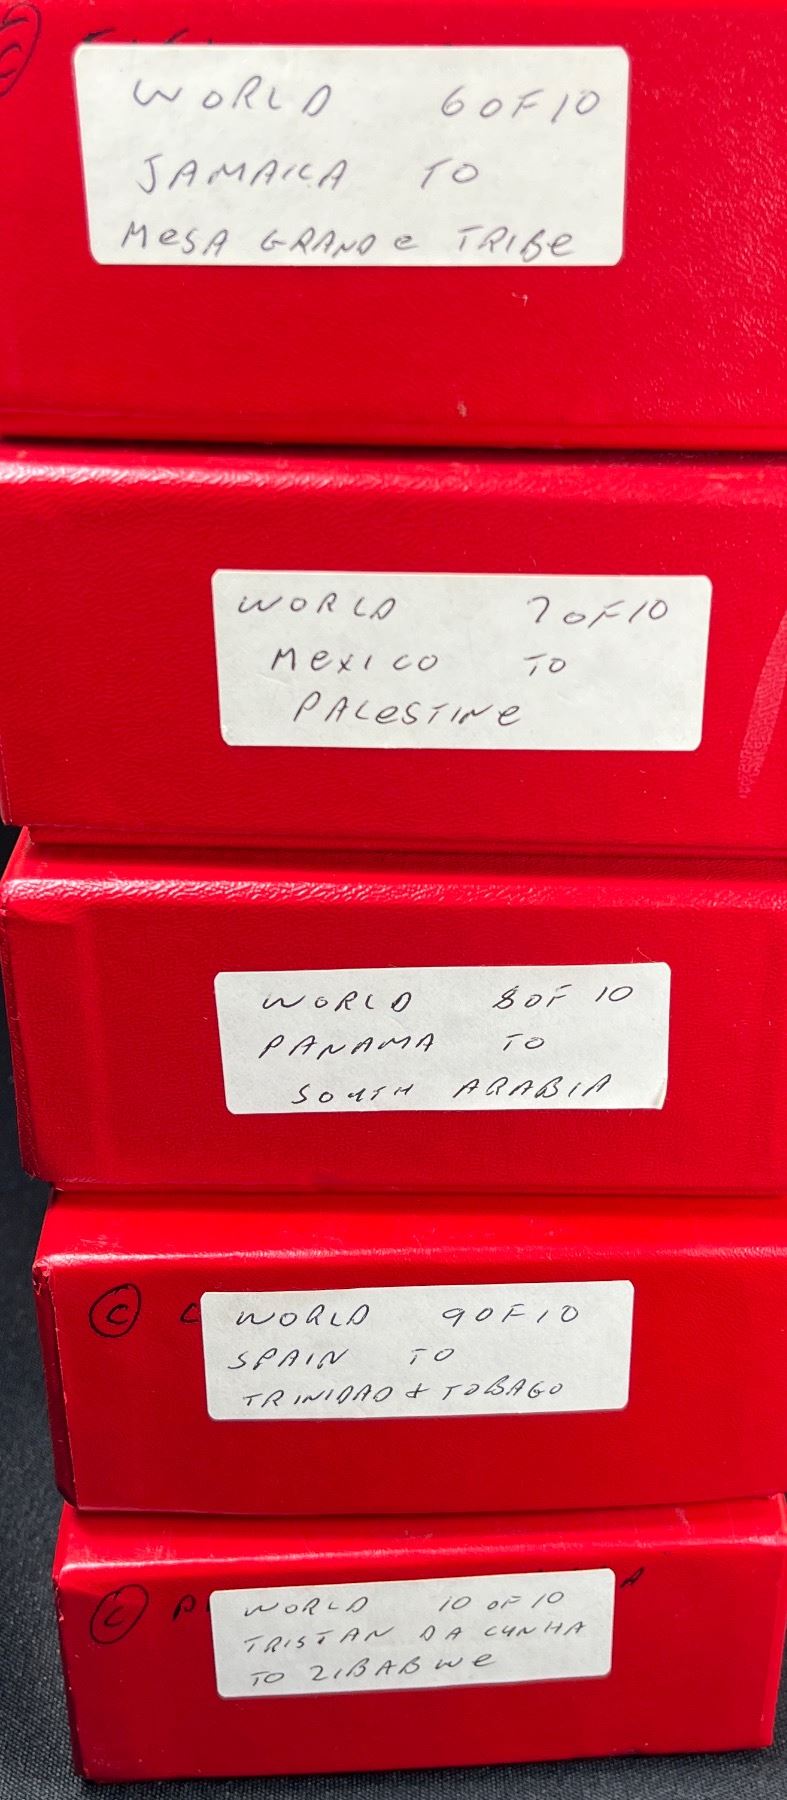 WORLD 6 OF 10
JAMAICA TO
MESA GRANDE TRIBE
WORLD 7 OF 10
MEXICO TO
PALESTINE
WORLD 8 OF 10
PANAMA TO
SOUTH ARABIA
C
WORLD 9 OF 10
SPAIN TO
TRINIDAD & TOBAGO
C
WORLD 10 OF 10
TRISTAN DA CUNHA
TO ZIBABWE